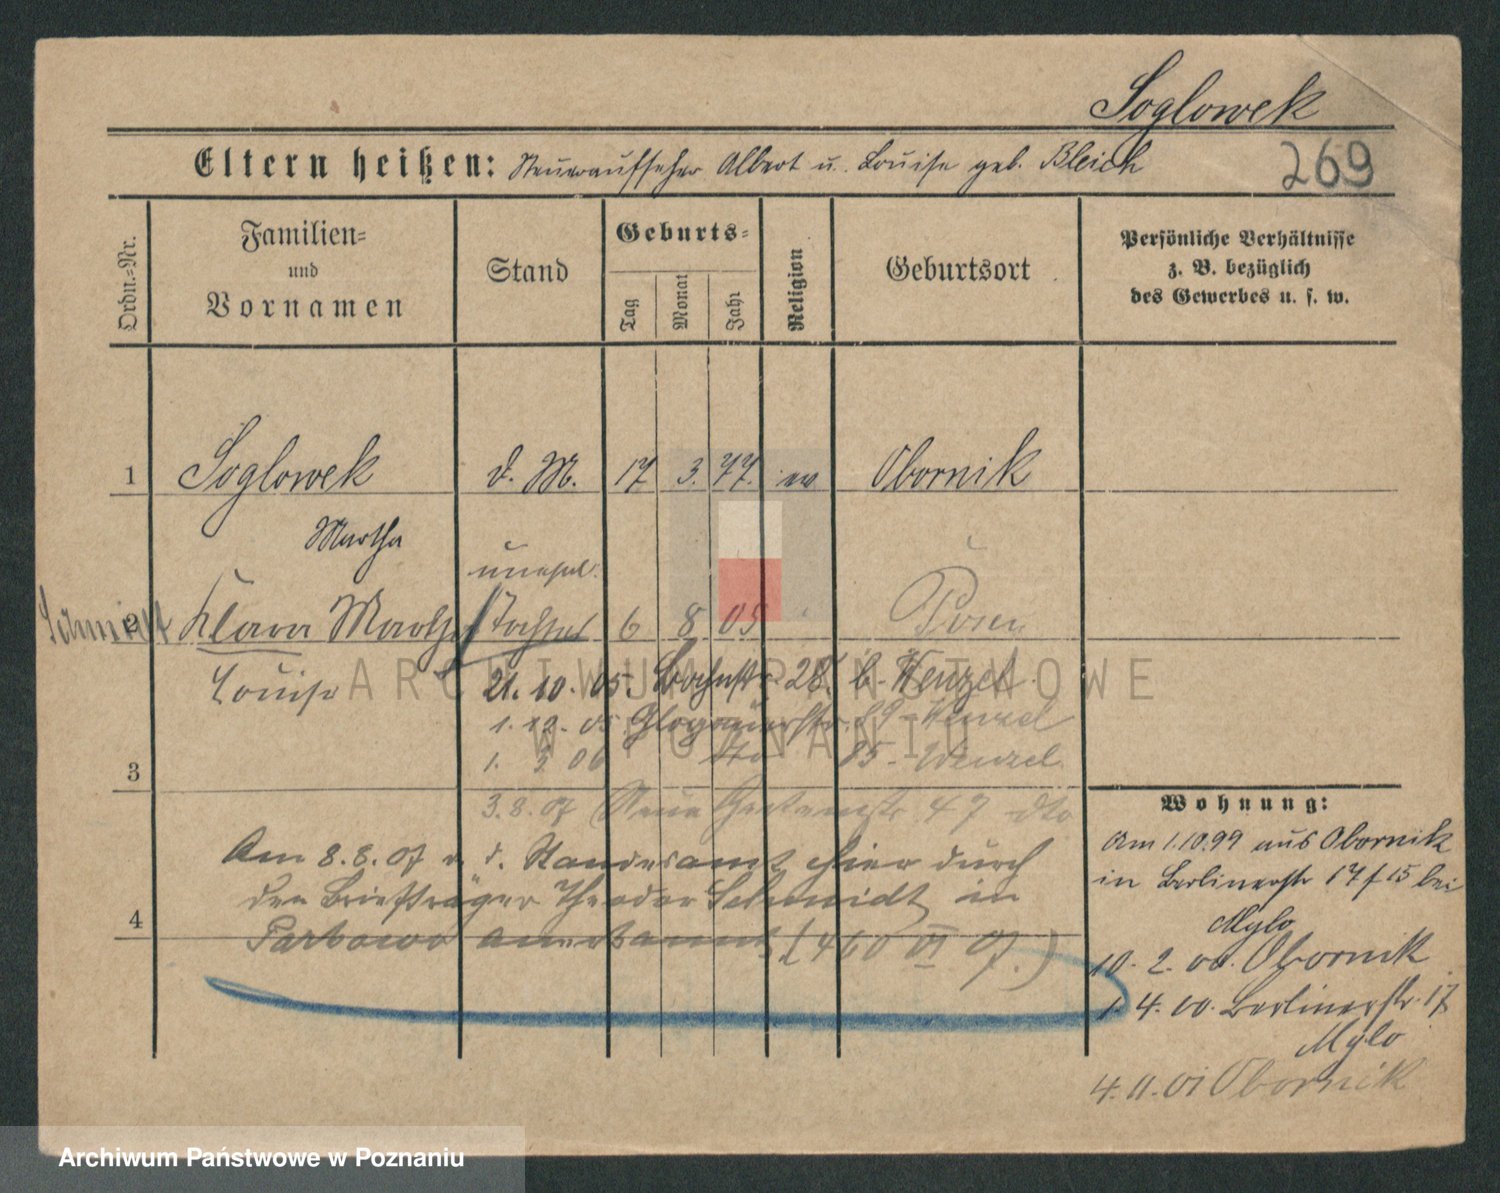 Soglowek
269
Eltern heißen: Steueraufseher Albert u. Louise geb. Bleich
Ordn.-Nr.
Familien-
und
Vornamen
Stand
Geburts-
Tag
Monat
Jahr
Religion
Geburtsort
Persönliche Verhältnisse
z. B. bezüglich
des Gewerbes u. s. w.
1 Soglowek d. M. 17 3. 77. ev Obornik
Martha
unehel.
Schmidt 2 Klara Martha Tochter 6 8 05 Posen
Louise 21. 10. 05. 28. b. Wenzel
1. 12. 05. Glogauerstr. 89 - Wenzel
3 1. 06 dto 85 - Wenzel
3. 8. 07 Neue Gartenstr 47 dto
Am 8. 8. 07 v. d. Standesamt hier durch
den Briefträger Theodor Schmidt in
4 anerkannt (460 VI 07.)
Wohnung:
Am 1.10.99 aus Obornik
in Berlinerstr 17 f 15 bei
Mylo
10. 2. 00. Obornik
1. 4. 00. Berlinerstr. 17
Mylo
4. 11. 01 Obornik
ARCHIWUM PAŃSTWOWE
W POZNANIU
Archiwum Państwowe w Poznaniu